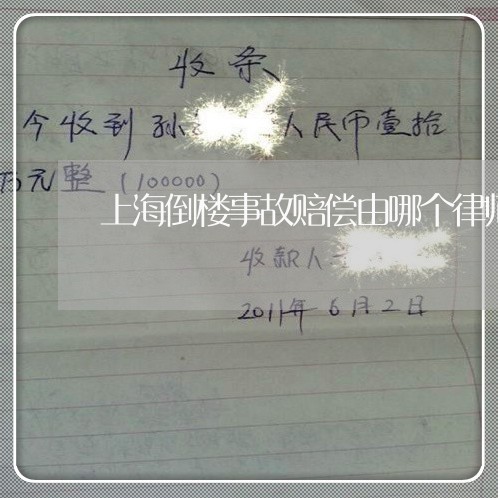 收条
今收到孙 人民币壹拾
万元整（100000）
上海倒楼事故赔偿由哪个律师
收款人
2011年6月2日